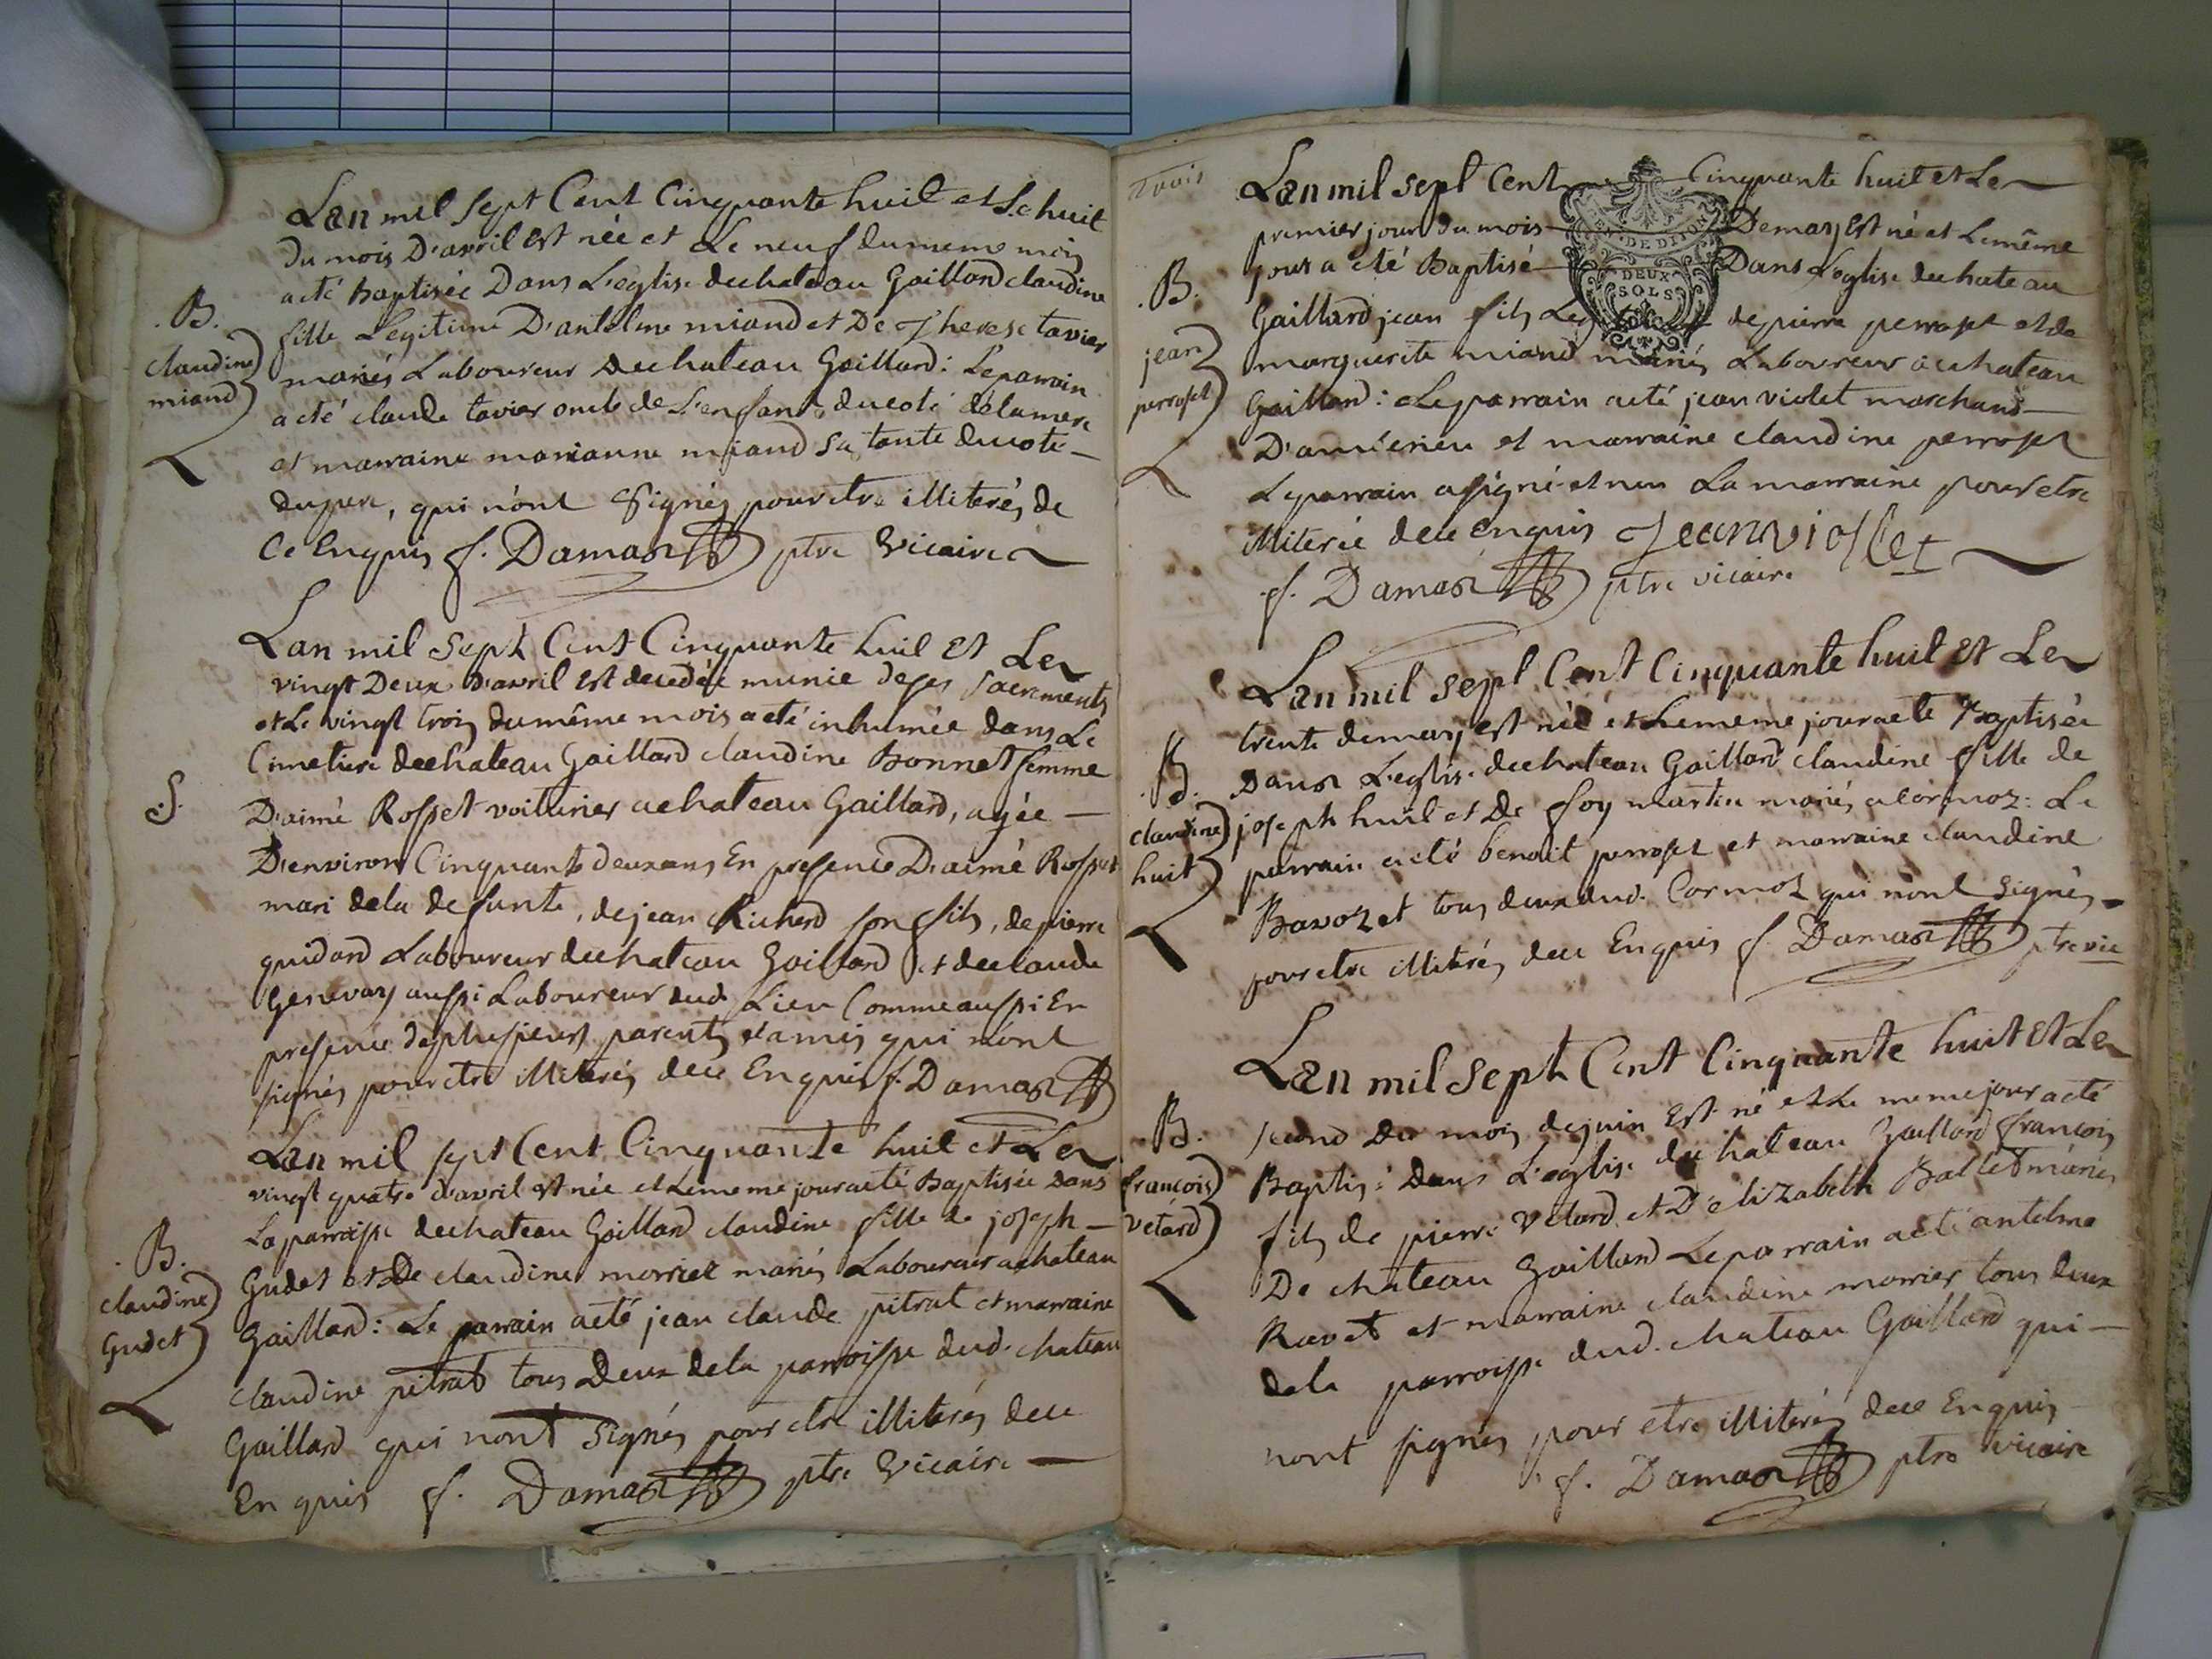 Lan mil sept Cent Cinquante huit et Le huit
du mois D'avril est née et Le neuf dumeme mois
a eté Baptisée Dans L'eglise dechateau Gaillard claudine
fille Legitime D'antelme miand et De Therese tavier
mariés Laboureur Dechateau Gaillard: Leparrain
a eté claude tavier oncle de L'enfant ducoté delamere
et marraine marianne miand sa tante ducoté
dupere, qui n'ont signés pouretre illiterés de
Ce Enquis f. Damas ptre Vicaire
.B.
claudine
miand
Lan mil sept Cent Cinquante huit Et Le
vingt Deux D'avril Est decedée munie deses sacrements
et Le vingt trois dumême mois a eté inhumée dans Le
Cimetiere dechateau Gaillard claudine Bonnet femme
D'aimé Rosset voiturier achateau Gaillard, agée
D'environ Cinquante deux ans En presence D'aimé Rosset
mari dela defunte, dejean Richerd son fils, depierre
guidard Laboureur dechateau Gaillard et declaude
Genevay aussi Laboureur dud. Lieu Comme aussi En
presence deplusieurs parents et amis qui n'ont
signés pouretre illiterés dece Enquis f. Damas
.S.
Lan mil sept Cent Cinquante huit et Le
vingt quatre d'avril est née et Lememe jour a eté Baptisée Dans
La parroisse dechateau Gaillard claudine fille de joseph
Gudet et De claudine morrier mariés Laboureur achateau
Gaillard: Le parrain a eté jean claude pitrat et marraine
claudine pitrat tous Deux dela parroisse dud. chateau
Gaillard qui nont signés pour etre illiterés dece
Enquis f. Damas ptre Vicaire
.B.
claudine
Gudet
trois
Lan mil sept Cent Cinquante huit et Le
premier jour du mois De may Est né et Lemême
jour a eté Baptisé Dans L'eglise dechateau
Gaillard jean fils depierre perrozet et de
marguerite miand mariés Laboureur a chateau
Gaillard: Le parrain a eté jean violet marchand
D'amberieu et marraine claudine perrozet
Leparrain a signé et non La marraine pouretre
illiterée dece Enquis Jean violet
f. Damas ptre vicaire
GEN. DE DIJON
DEUX
SOLS
.B.
jean
perrozet
Lan mil sept Cent Cinquante huit Et Le
trente demay est née et Lememe jour a eté Baptisée
Dans L'eglise dechateau Gaillard claudine fille de
joseph huit et De foy martin mariés a Cormoz: Le
parrain a eté benoit perrozet et marraine claudine
Bavozet tous deux dud. Cormoz qui n'ont signés
pouretre illiterés dece Enquis f. Damas ptre vic
.B.
claudine
huit
Lan mil sept Cent Cinquante huit Et Le
second Du mois dejuin Est né et Le meme jour a eté
Baptisé Dans L'église dechateau Gaillard françois
fils de pierre Vetard et D'elizabeth Ballet mariés
De chateau Gaillard Leparrain a eté antelme
Ravet et marraine claudine morrier tous deux
dela parroisse dud. chateau Gaillard qui
nont signés pour etre illiterés dece Enquis
f. Damas ptre vicaire
.B.
françois
Vetard